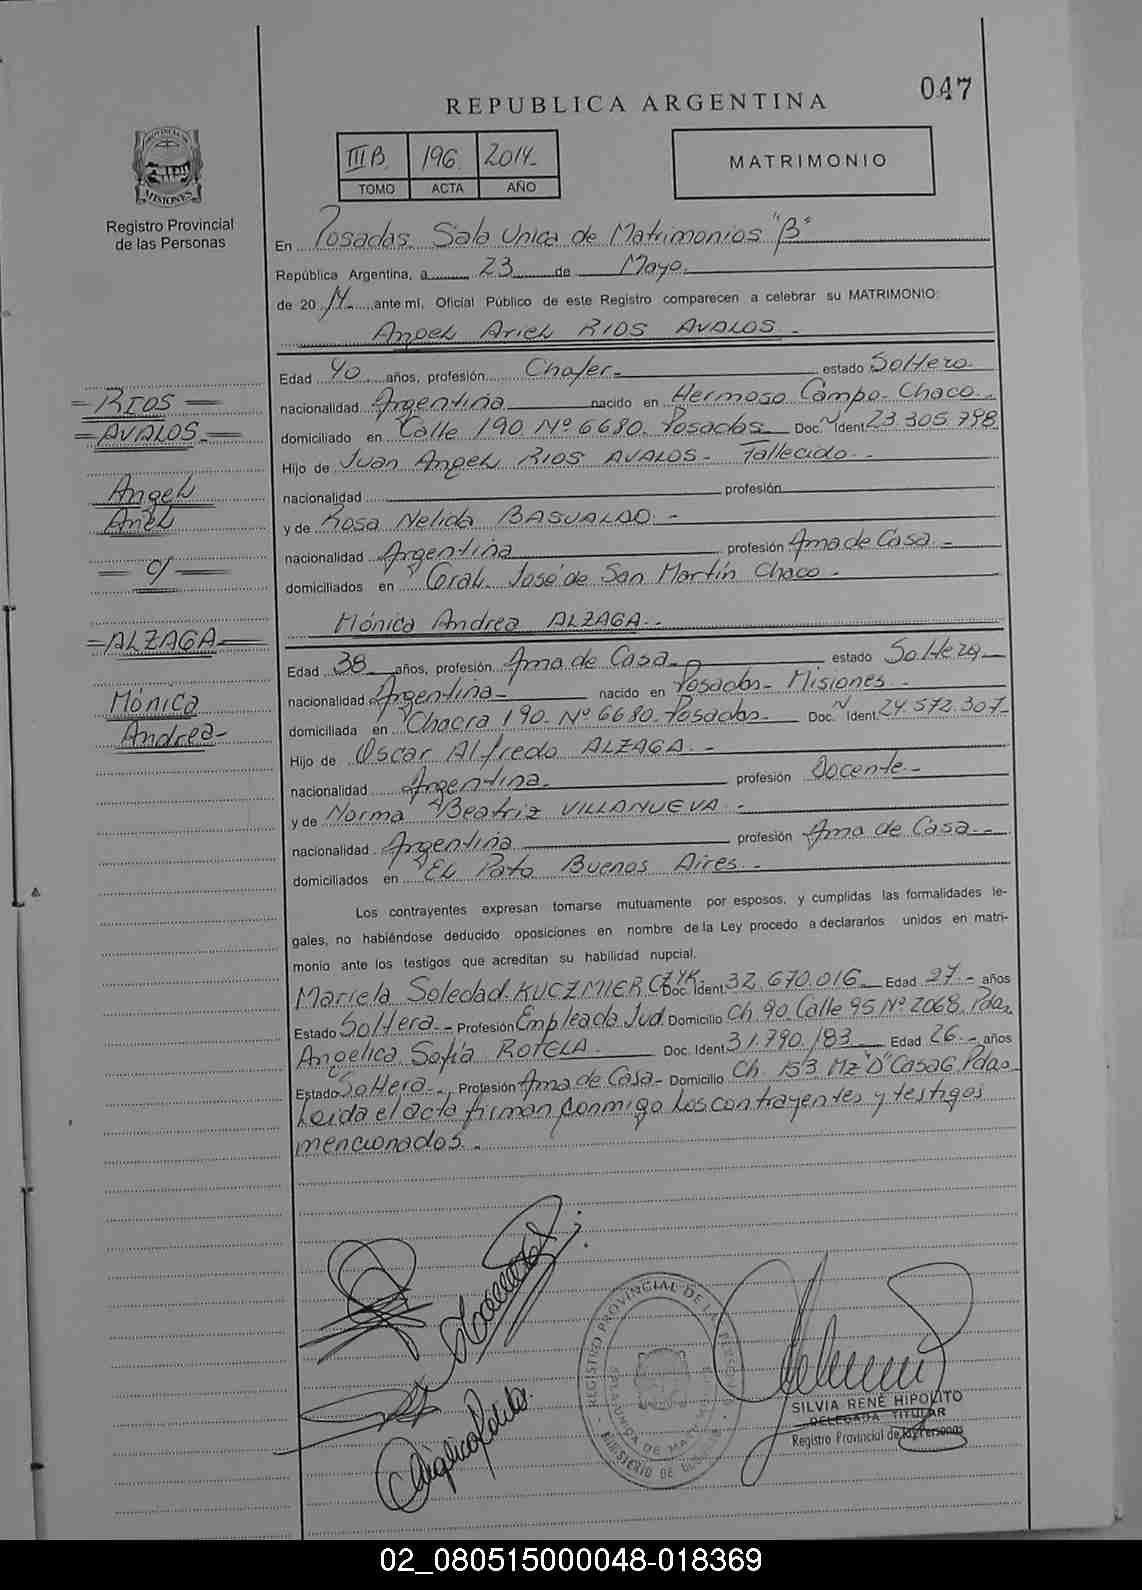 047
REPUBLICA ARGENTINA
III B. 196 2014-
TOMO ACTA AÑO
MATRIMONIO
PROVINCIA DE
MISIONES
Registro Provincial
de las Personas
En Posadas. Sala Unica de Matrimonios "B"
República Argentina, a 23 de Mayo.
de 20 14 ante mi, Oficial Público de este Registro comparecen a celebrar su MATRIMONIO:
Angel Ariel RIOS AVALOS.-
Edad 40 años, profesión Chofer.- estado Soltero.
nacionalidad Argentina nacido en Hermoso Campo- Chaco.
domiciliado en Calle 190 Nº 6680. Posadas- Doc. Ident. 23.305.798
Hijo de Juan Angel RIOS AVALOS- Fallecido.-
nacionalidad profesión
y de Rosa Nelida BASUALDO.-
nacionalidad Argentina profesión Ama de Casa.-
domiciliados en Gral. José de San Martín Chaco.-
Mónica Andrea ALZAGA.-
Edad 38 años, profesión Ama de Casa- estado Soltera
nacionalidad Argentina- nacido en Posadas- Misiones.-
domiciliada en Chacra 190- Nº 6680- Posadas- Doc. Ident. 24.572.307-
Hijo de Oscar Alfredo ALZAGA.-
nacionalidad Argentina- profesión Docente-
y de Norma Beatriz VILLANUEVA.-
nacionalidad Argentina profesión Ama de Casa-
domiciliados en El Pato Buenos Aires.-
Los contrayentes expresan tomarse mutuamente por esposos, y cumplidas las formalidades le-
gales, no habiéndose deducido oposiciones en nombre de la Ley procedo a declararlos unidos en matri-
monio ante los testigos que acreditan su habilidad nupcial.
Mariela Soledad KUCZMIERCZYK- Doc. Ident. 32.670.016 Edad 27- años
Estado Soltera- Profesión Empleada Jud. Domicilio Ch. 90 Calle 95 Nº 2068. Pdas.
Angelica Sofia ROTELA. Doc. Ident. 31.790.183 Edad 26.- años
Estado Soltera- Profesión Ama de Casa- Domicilio Ch. 153 Mz "D" Casa 6 Pdas
Leida el acta firman conmigo los contrayentes y testigos
mencionados.-
=RIOS=
=AVALOS=
Angel
Ariel
= c/ =
=ALZAGA=
Mónica
Andrea-
REGISTRO PROVINCIAL DE LAS PERSONAS
SALA UNICA DE MATRIMONIOS
MINISTERIO DE GOBIERNO
SILVIA RENÉ HIPOLITO
DELEGADA TITULAR
Registro Provincial de las Personas
02_080515000048-018369